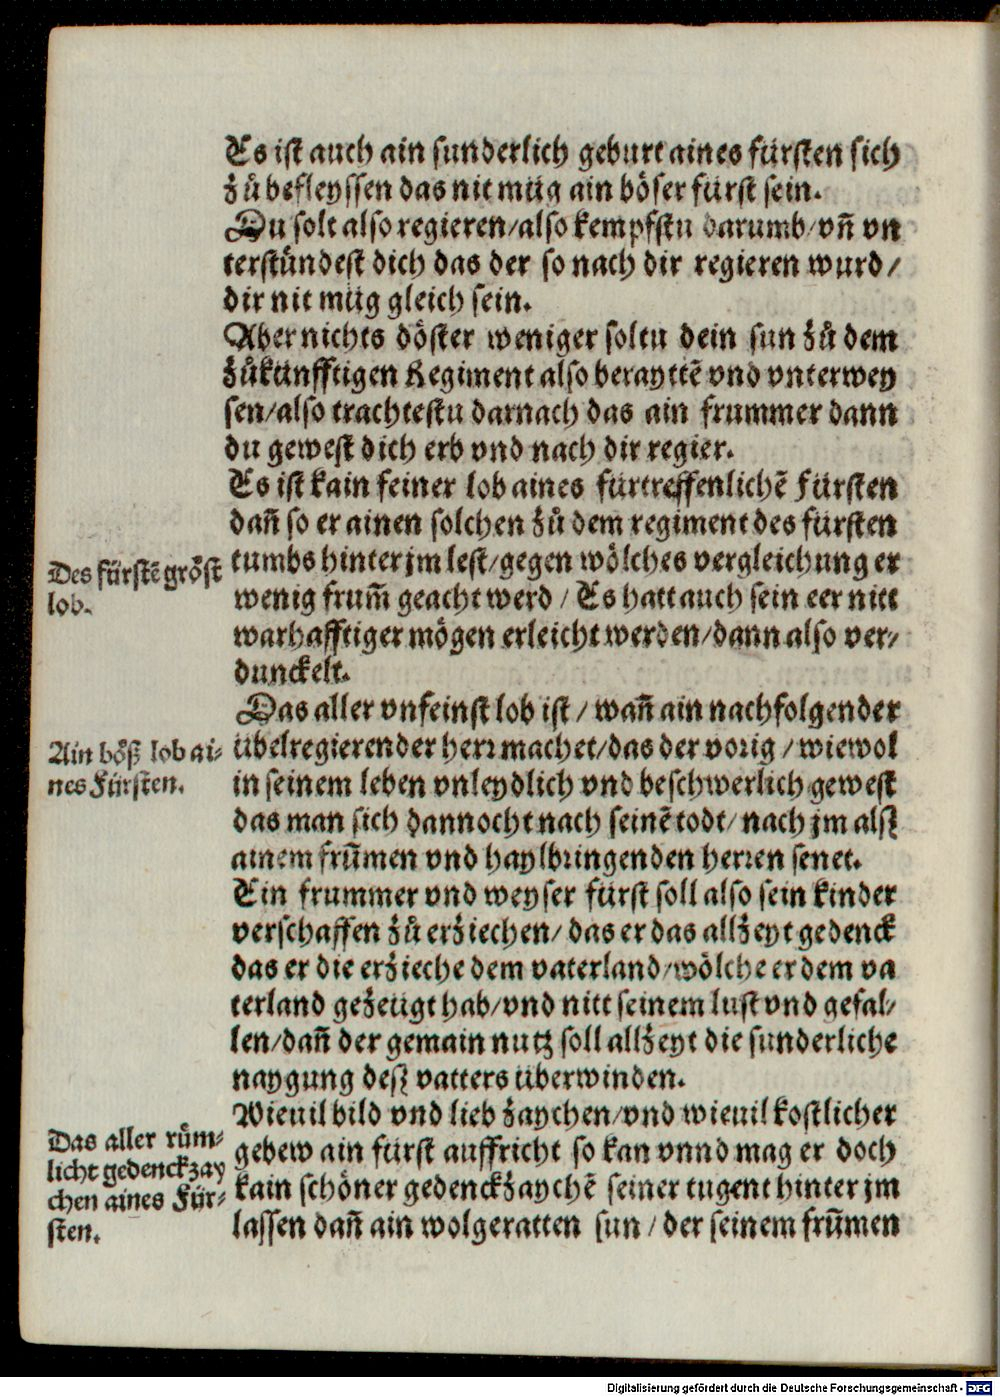 Es ist auch ain sunderlich geburt aines fürsten sich
zů befleyssen das nit müg ain böser fürst sein.
Du solt also regieren/also kempfstu darumb/vñ vn
terstündest dich das der so nach dir regieren wurd/
dir nit müg gleich sein.
Aber nichts döster weniger soltu dein sun zů dem
zůkünfftigen Regiment also berayttẽ vnd vnterwey
sen/also trachtestu darnach das ain frummer dann
du gewest dich erb vnd nach dir regier.
Es ist kain feiner lob aines fürtreffenlichẽ Fürsten
dañ so er ainen solchen zů dem regiment des fürsten
tumbs hinter jm lest/gegen wölches vergleichung er
wenig frum̃ geacht werd / Es hatt auch sein eer nitt
warhafftiger mögen erleicht werden/dann also ver⸗
dunckelt.
Des fürstẽ gröst
lob.
Das aller vnfeinst lob ist / wañ ain nachfolgender
übelregierender herr machet/das der vorig / wiewol
in seinem leben vnleydlich vnd beschwerlich gewest
das man sich dannocht nach seinẽ todt/ nach jm alsz
ainem frũmen vnd haylbringenden herren senet.
Ain böß lob ai⸗
nes Fürsten.
Ein frummer vnd weyser fürst soll also sein kinder
verschaffen zů erziechen/ das er das allzeyt gedenck
das er die erzieche dem vaterland/wölche er dem va
terland gezeügt hab/vnd nitt seinem lust vnd gefal⸗
len/dañ der gemain nutz soll allzeyt die sunderliche
naygung desz vatters überwinden.
Wieuil bild vnd lieb zaychen/vnd wieuil kostlicher
gebew ain fürst auffricht so kan vnnd mag er doch
kain schöner gedenckzaychẽ seiner tugent hinter jm
lassen dañ ain wolgeratten sun / der seinem frũmen
Das aller rům⸗
licht gedenckzay
chen aines Für⸗
sten.
Digitalisierung gefördert durch die Deutsche Forschungsgemeinschaft - DFG